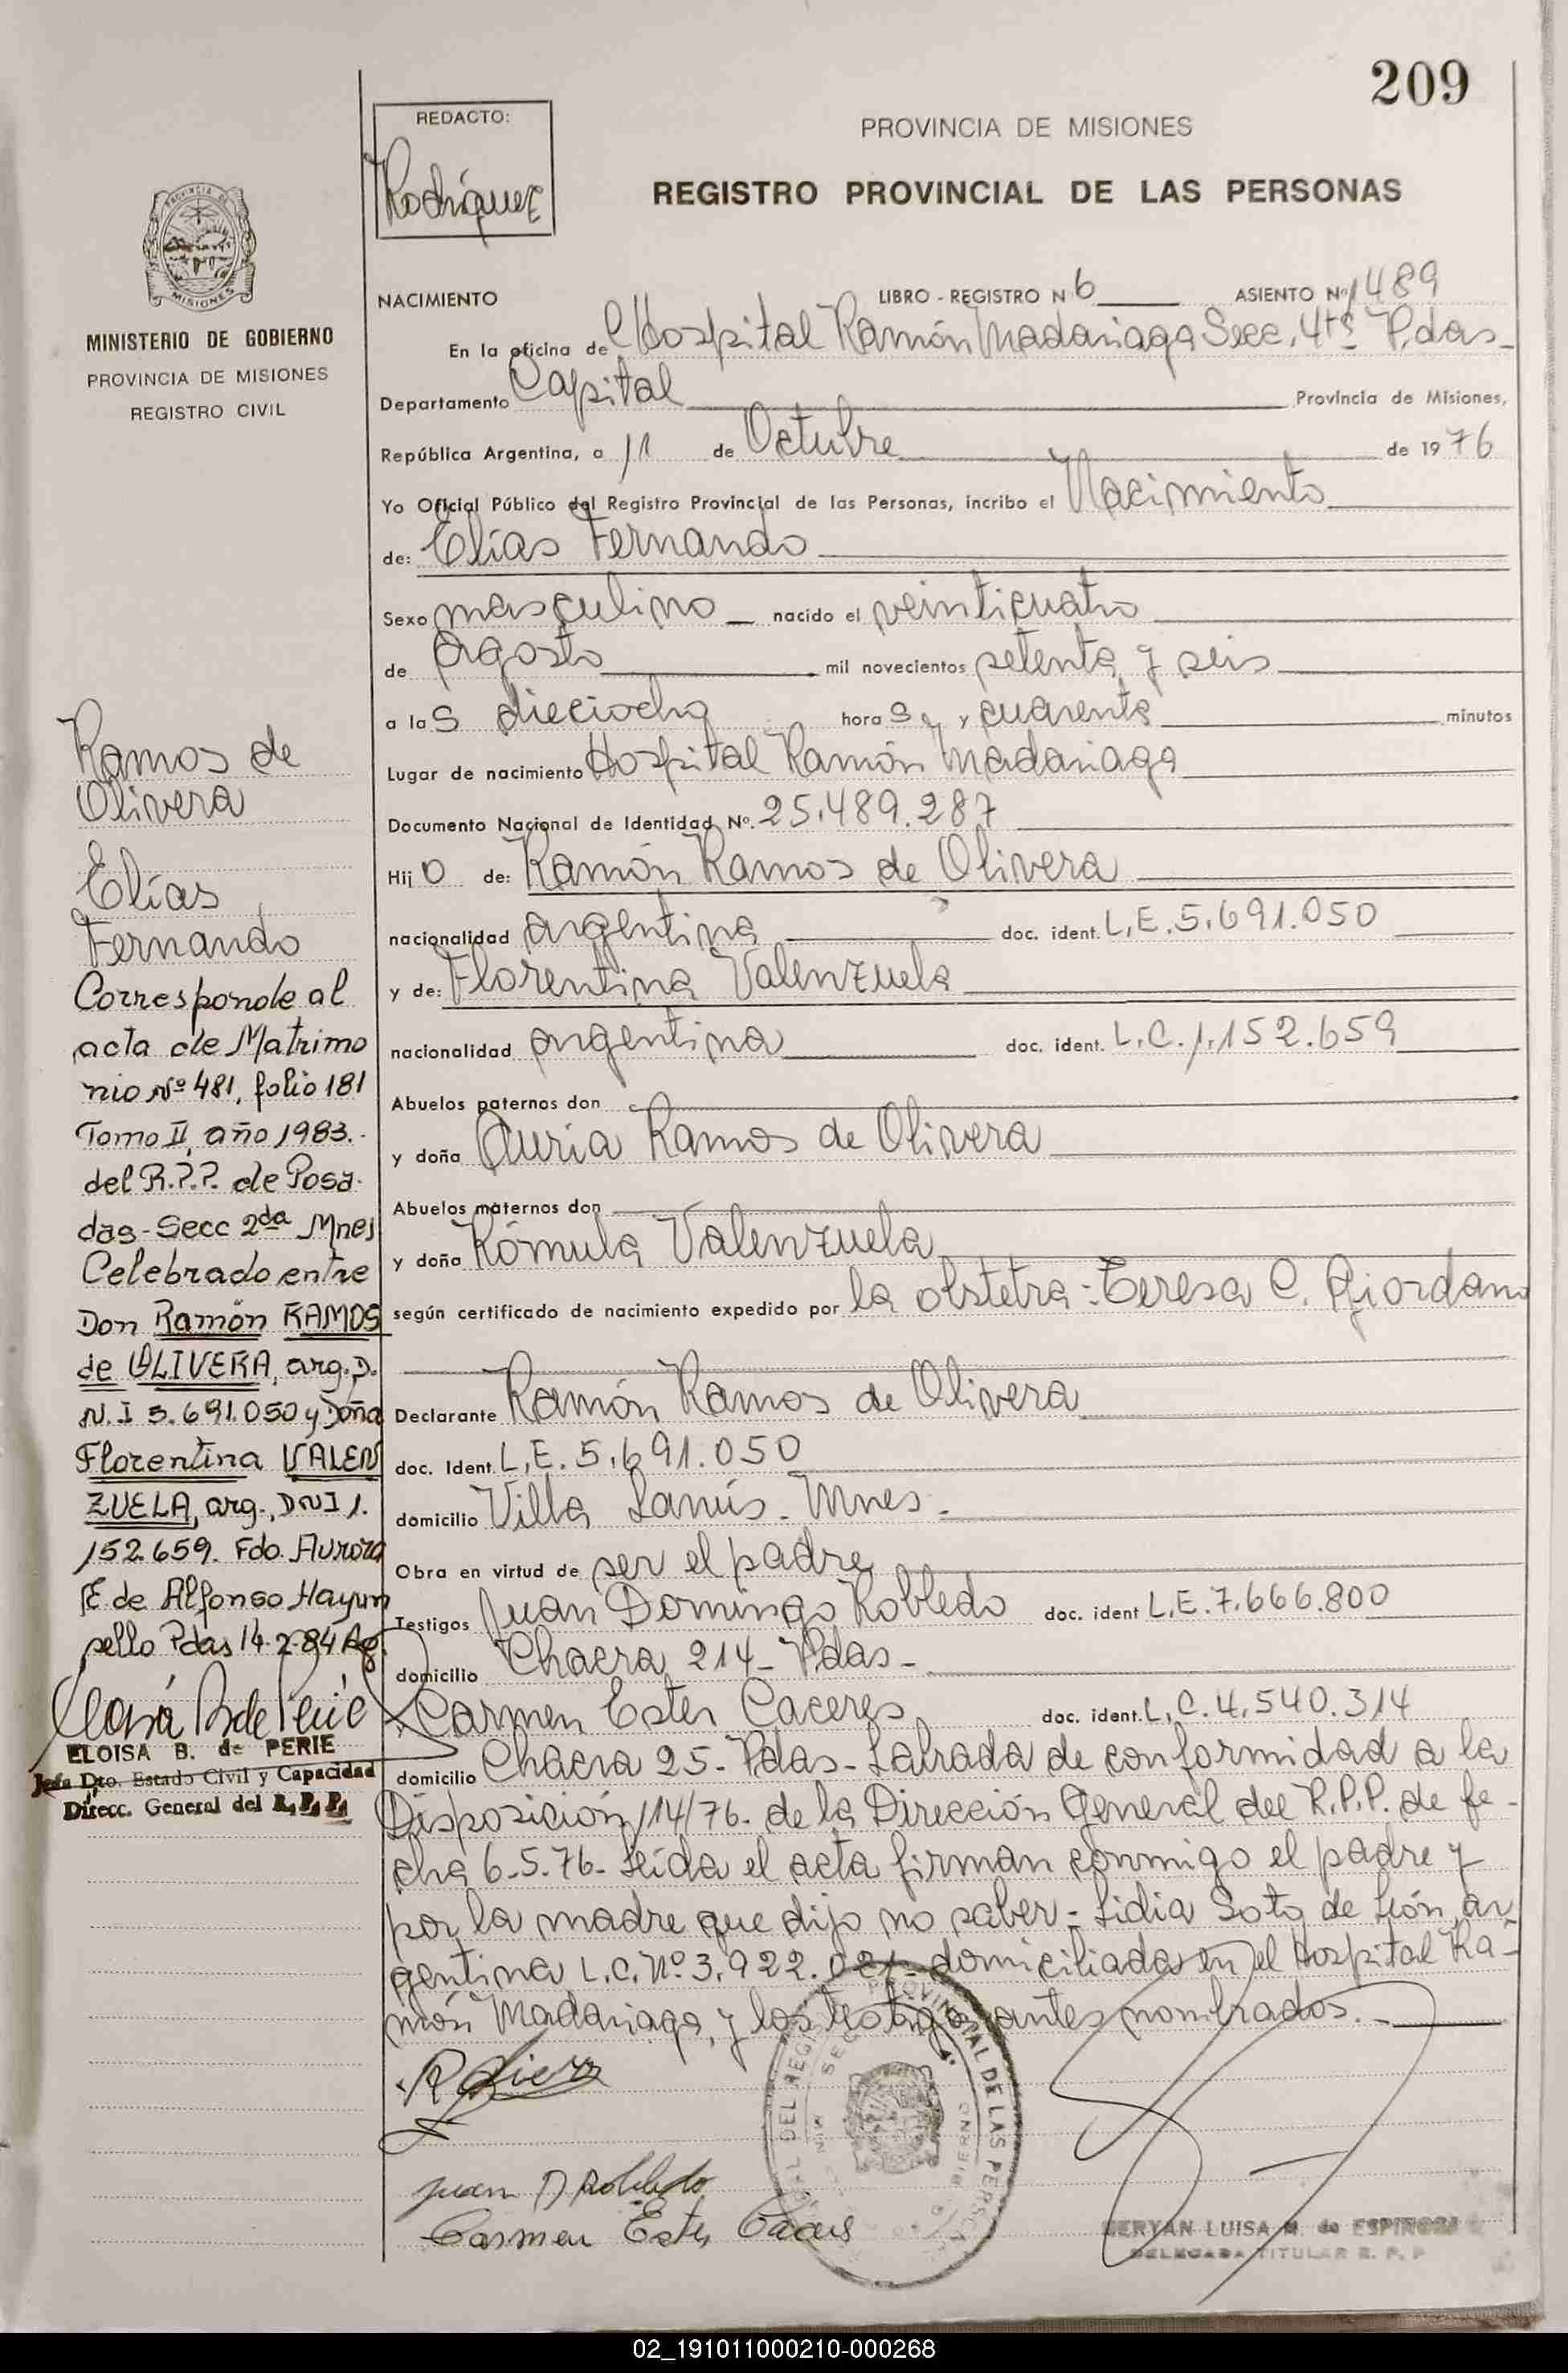 209
REDACTO:
Rodríguez
PROVINCIA DE MISIONES
REGISTRO PROVINCIAL DE LAS PERSONAS
PROVINCIA DE MISIONES
MINISTERIO DE GOBIERNO
PROVINCIA DE MISIONES
REGISTRO CIVIL
NACIMIENTO LIBRO - REGISTRO Nº 6 ASIENTO Nº 1489
En la oficina de Hospital Ramón Madariaga Secc. 4ta P,das-
Departamento Capital Provincia de Misiones,
República Argentina, a 11 de Octubre de 1976
Yo Oficial Público del Registro Provincial de las Personas, incribo el Nacimiento
de: Elías Fernando
Sexo masculino nacido el veinticuatro
de agosto mil novecientos setenta y seis
a las dieciocho horas y cuarenta minutos
Lugar de nacimiento Hospital Ramón Madariaga
Documento Nacional de Identidad Nº. 25.489.287
Hijo de: Ramón Ramos de Olivera
nacionalidad argentina doc. ident. L.E. 5.691.050
y de: Florentina Valenzuela
nacionalidad argentina doc. ident. L.C. 1.152.659
Abuelos paternos don
y doña Auria Ramos de Olivera
Abuelos maternos don
y doña Rómula Valenzuela
según certificado de nacimiento expedido por la obstetra: Teresa C. Giordano
Declarante Ramón Ramos de Olivera
doc. Ident. L.E. 5.691.050
domicilio Villa Lanús. Mnes.
Obra en virtud de ser el padre
Testigos Juan Domingo Robledo doc. ident L.E. 7.666.800
domicilio Chacra 214- Pdas-
Carmen Ester Caceres doc. ident. L.C. 4.540.314
domicilio Chacra 25- Pdas- Labrada de conformidad a la
Disposición 114/76- de la Dirección General del R.P.P. de fe-
cha 6-5-76- Leída el acta firman conmigo el padre y
por la madre que dijo no saber- Lidia Soto de León, ar
gentina L.C. Nº 3.922.021- domiciliada en el Hospital Ra-
món Madariaga, y los testigos antes nombrados.-
Juan D Robledo
Carmen Ester Caceres
SERYAN LUISA M. de ESPINOSA
DELEGADA TITULAR R. P. P
Ramos de
Olivera
Elías
Fernando
Corresponde al
acta de Matrimo
nio Nº 481, folio 181
Tomo II, año 1983.-
del R.P.P. de Posa-
das-Secc 2da Mnes
Celebrado entre
Don Ramón RAMOS
de OLIVERA, arg. D.
N.I 5.691.050 y Doña
Florentina VALEN
ZUELA, arg., DNI 1.
152.659. Fdo. Aurora
E de Alfonso Hayun
sello Pdas 14-2-84
ELOISA B. de PERIE
Jefa Dto. Estado Civil y Capacidad
Direcc. General del R. P. P.
02_191011000210-000268